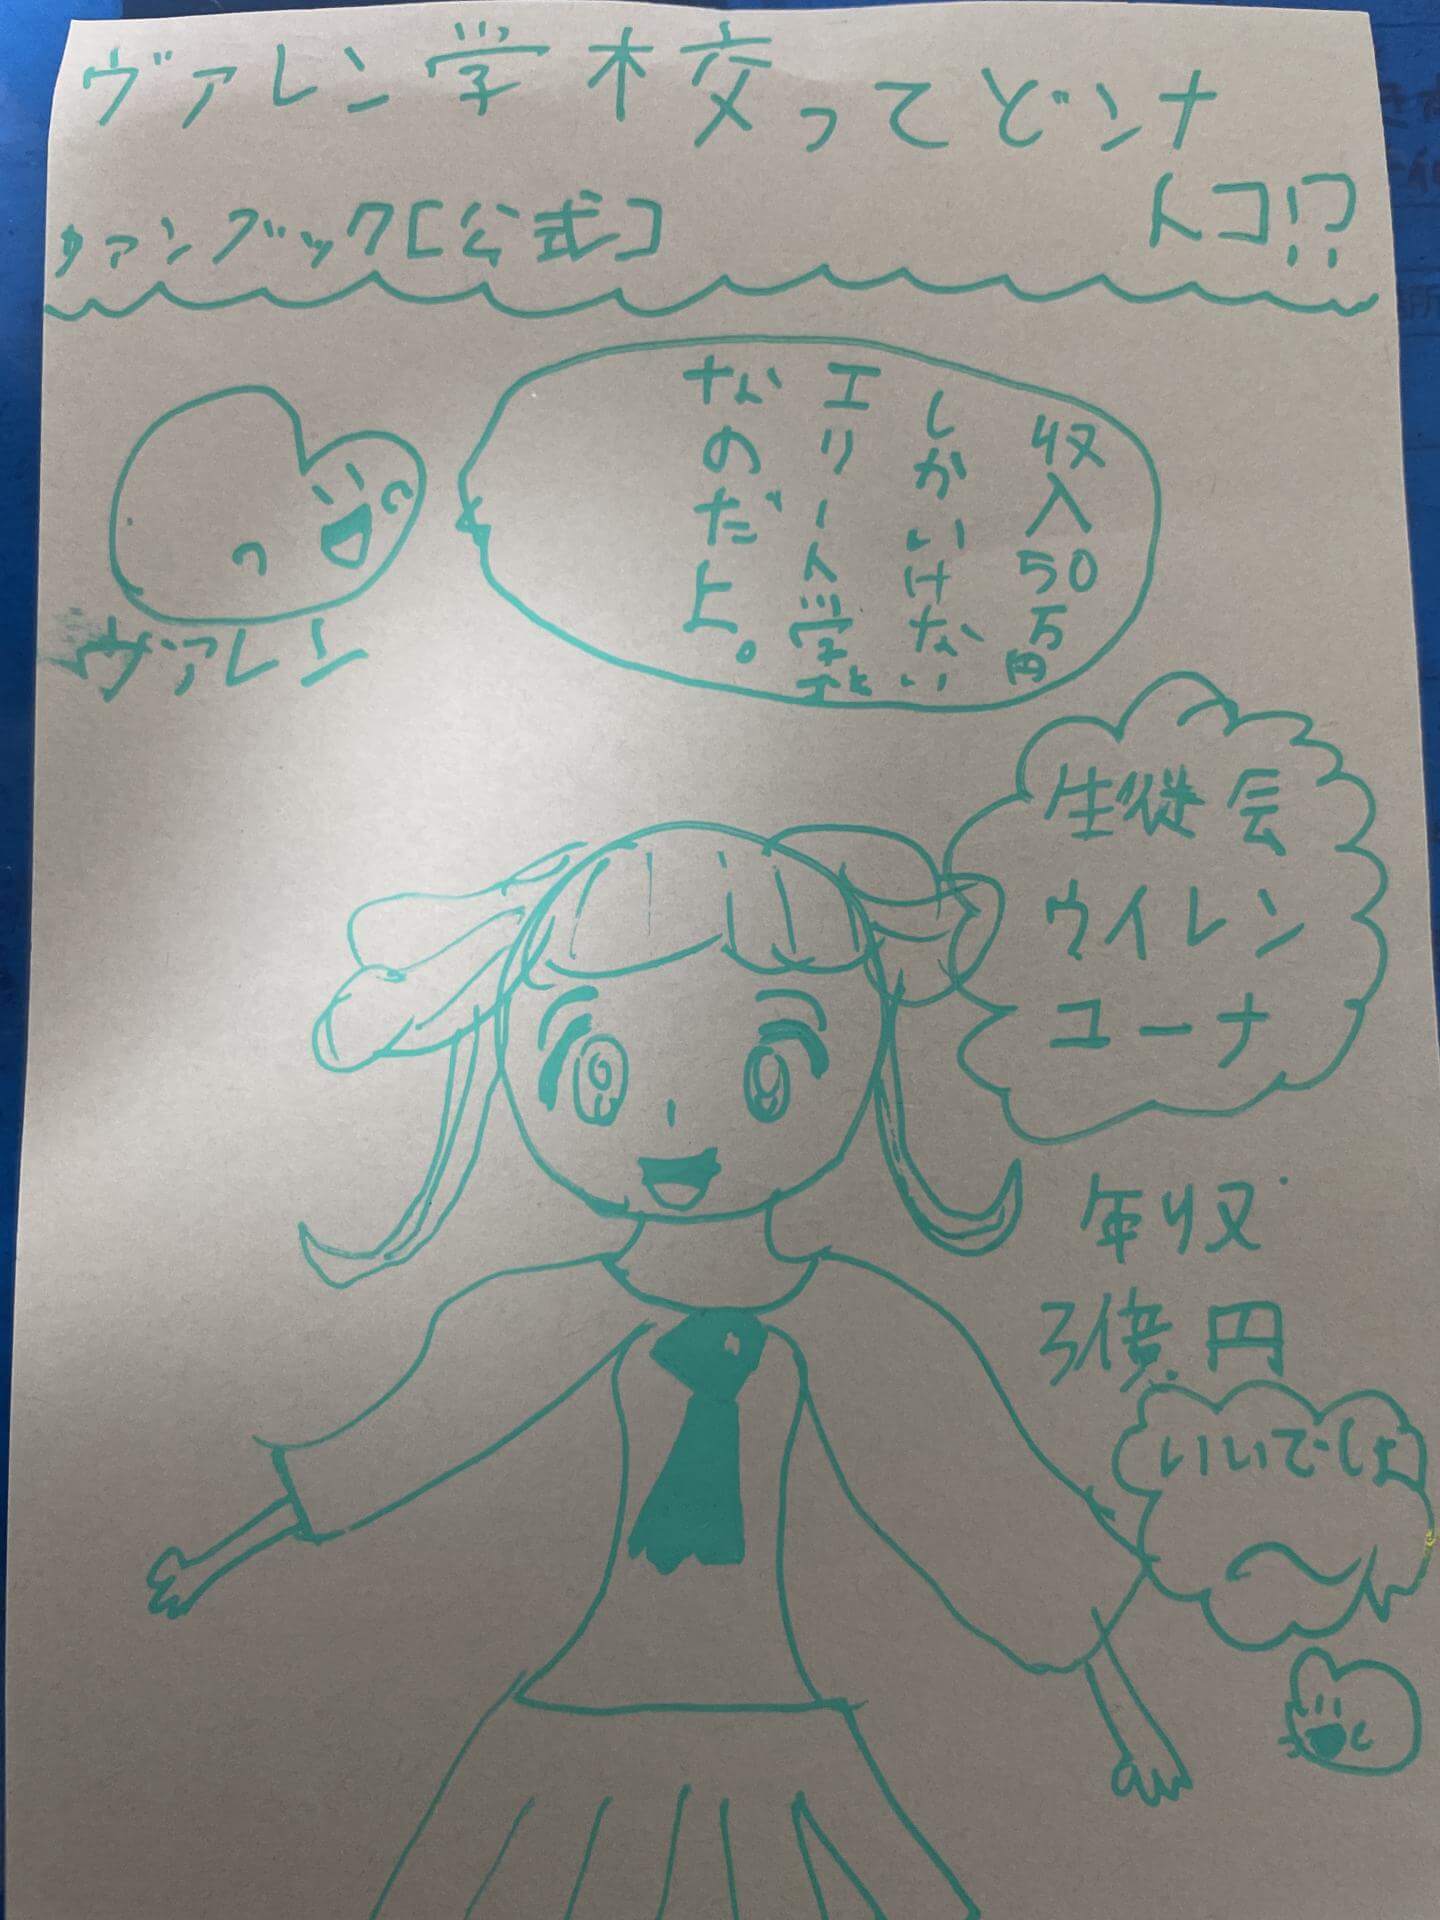 ヴァレン学校ってどンナ
トコ!?
ファンブック[公式]
収入50万円
しかいけない
エリート学校
なのだよ。
ヴァレン
生徒会
ウイレン
ユーナ
年収
3億円
いいでしょ
〜